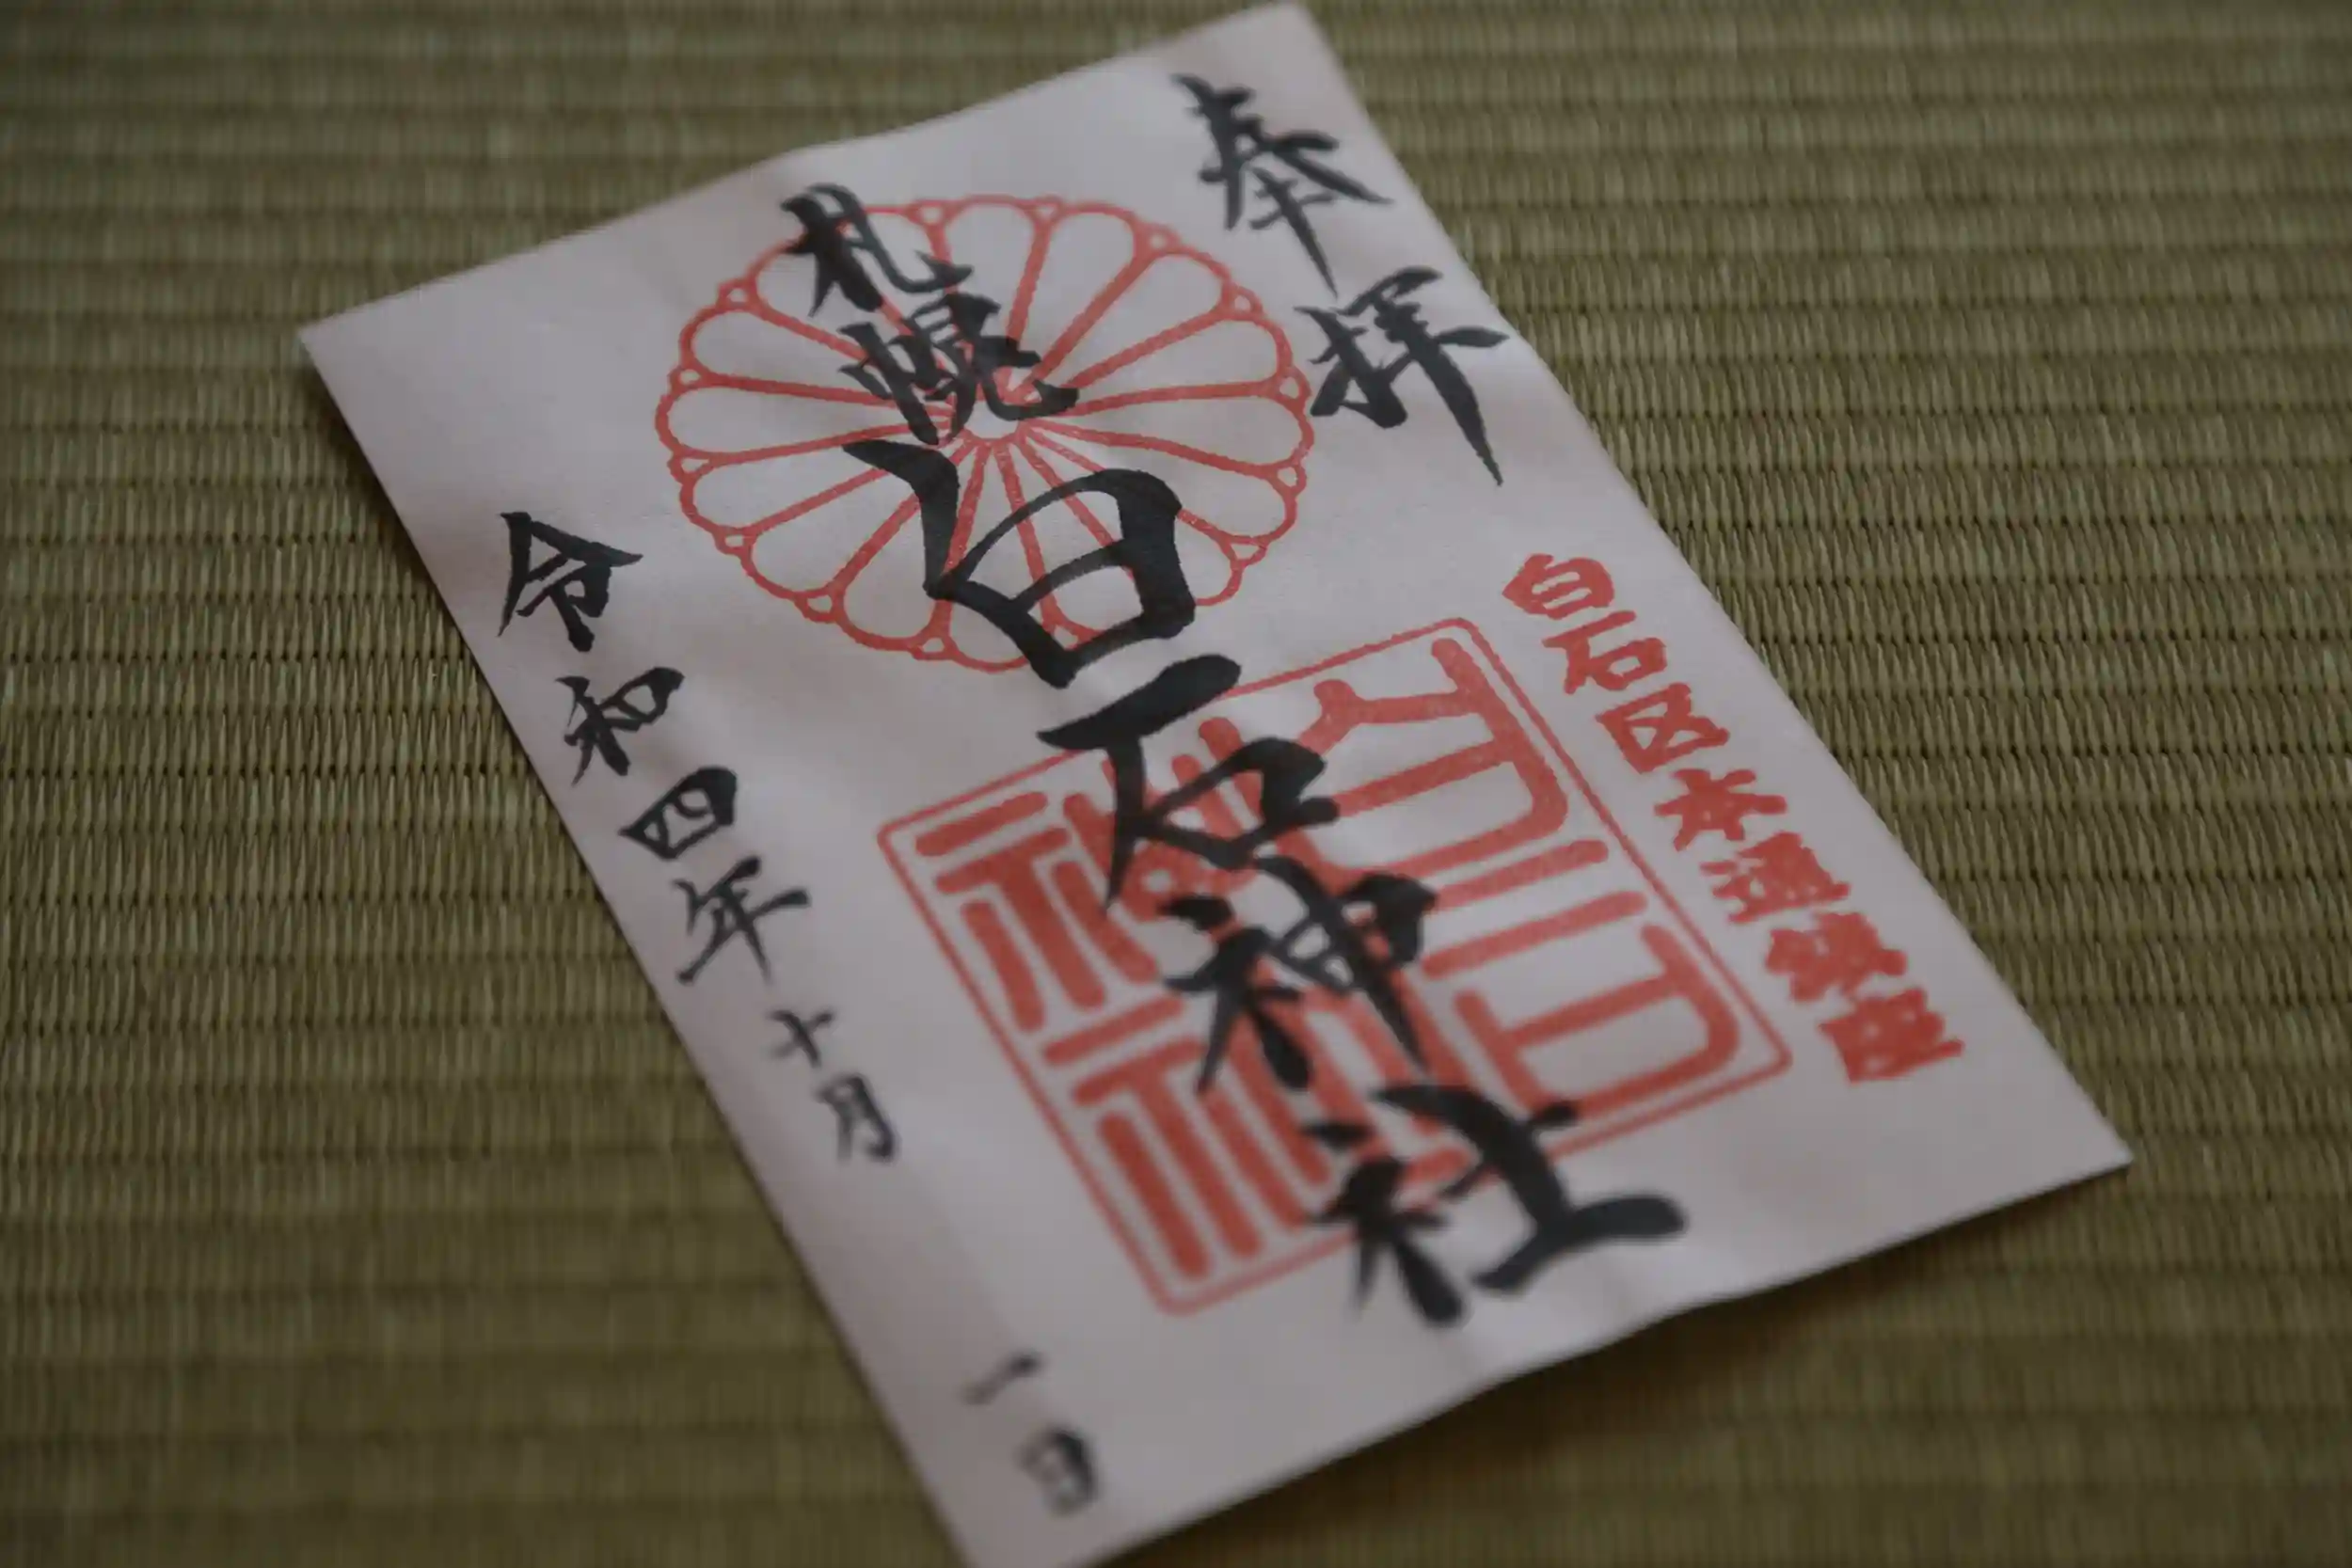 奉拝
白石区本通鎮座
札幌
白石神社
令和四年十月一日